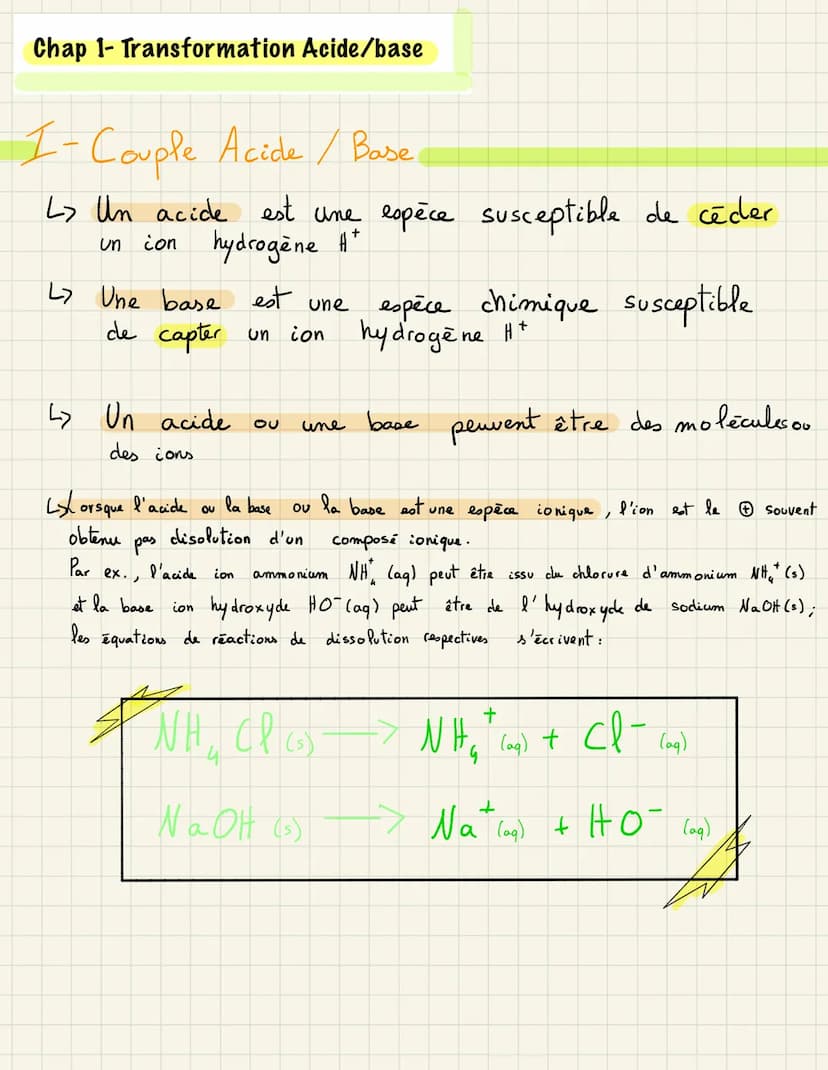 Chap 1- Transformation Acide/base
I- Couple Acide / Base
↳ Un acide est une espèce susceptible de céder
un ion hydrogène H⁺
↳ Une base est une espèce chimique susceptible
de capter un ion hydrogène H⁺
↳ Un acide ou une base peuvent être des molécules ou
des ions
↳ Lorsque l'acide ou la base ou la base est une espèce ionique, l'ion est le ⊕ souvent
obtenu pas disolution d'un composé ionique.
Par ex., l'acide ion ammonium NH₄⁺ (aq) peut être issu du chlorure d'ammonium NH₄⁺ (s)
et la base ion hydroxyde HO⁻ (aq) peut être de l'hydroxyde de sodium NaOH (s);
les équations de réactions de dissolution respectives s'écrivent :
NH₄Cl (s) → NH₄⁺ (aq) + Cl⁻ (aq)
NaOH (s) → Na⁺ (aq) + HO⁻ (aq)